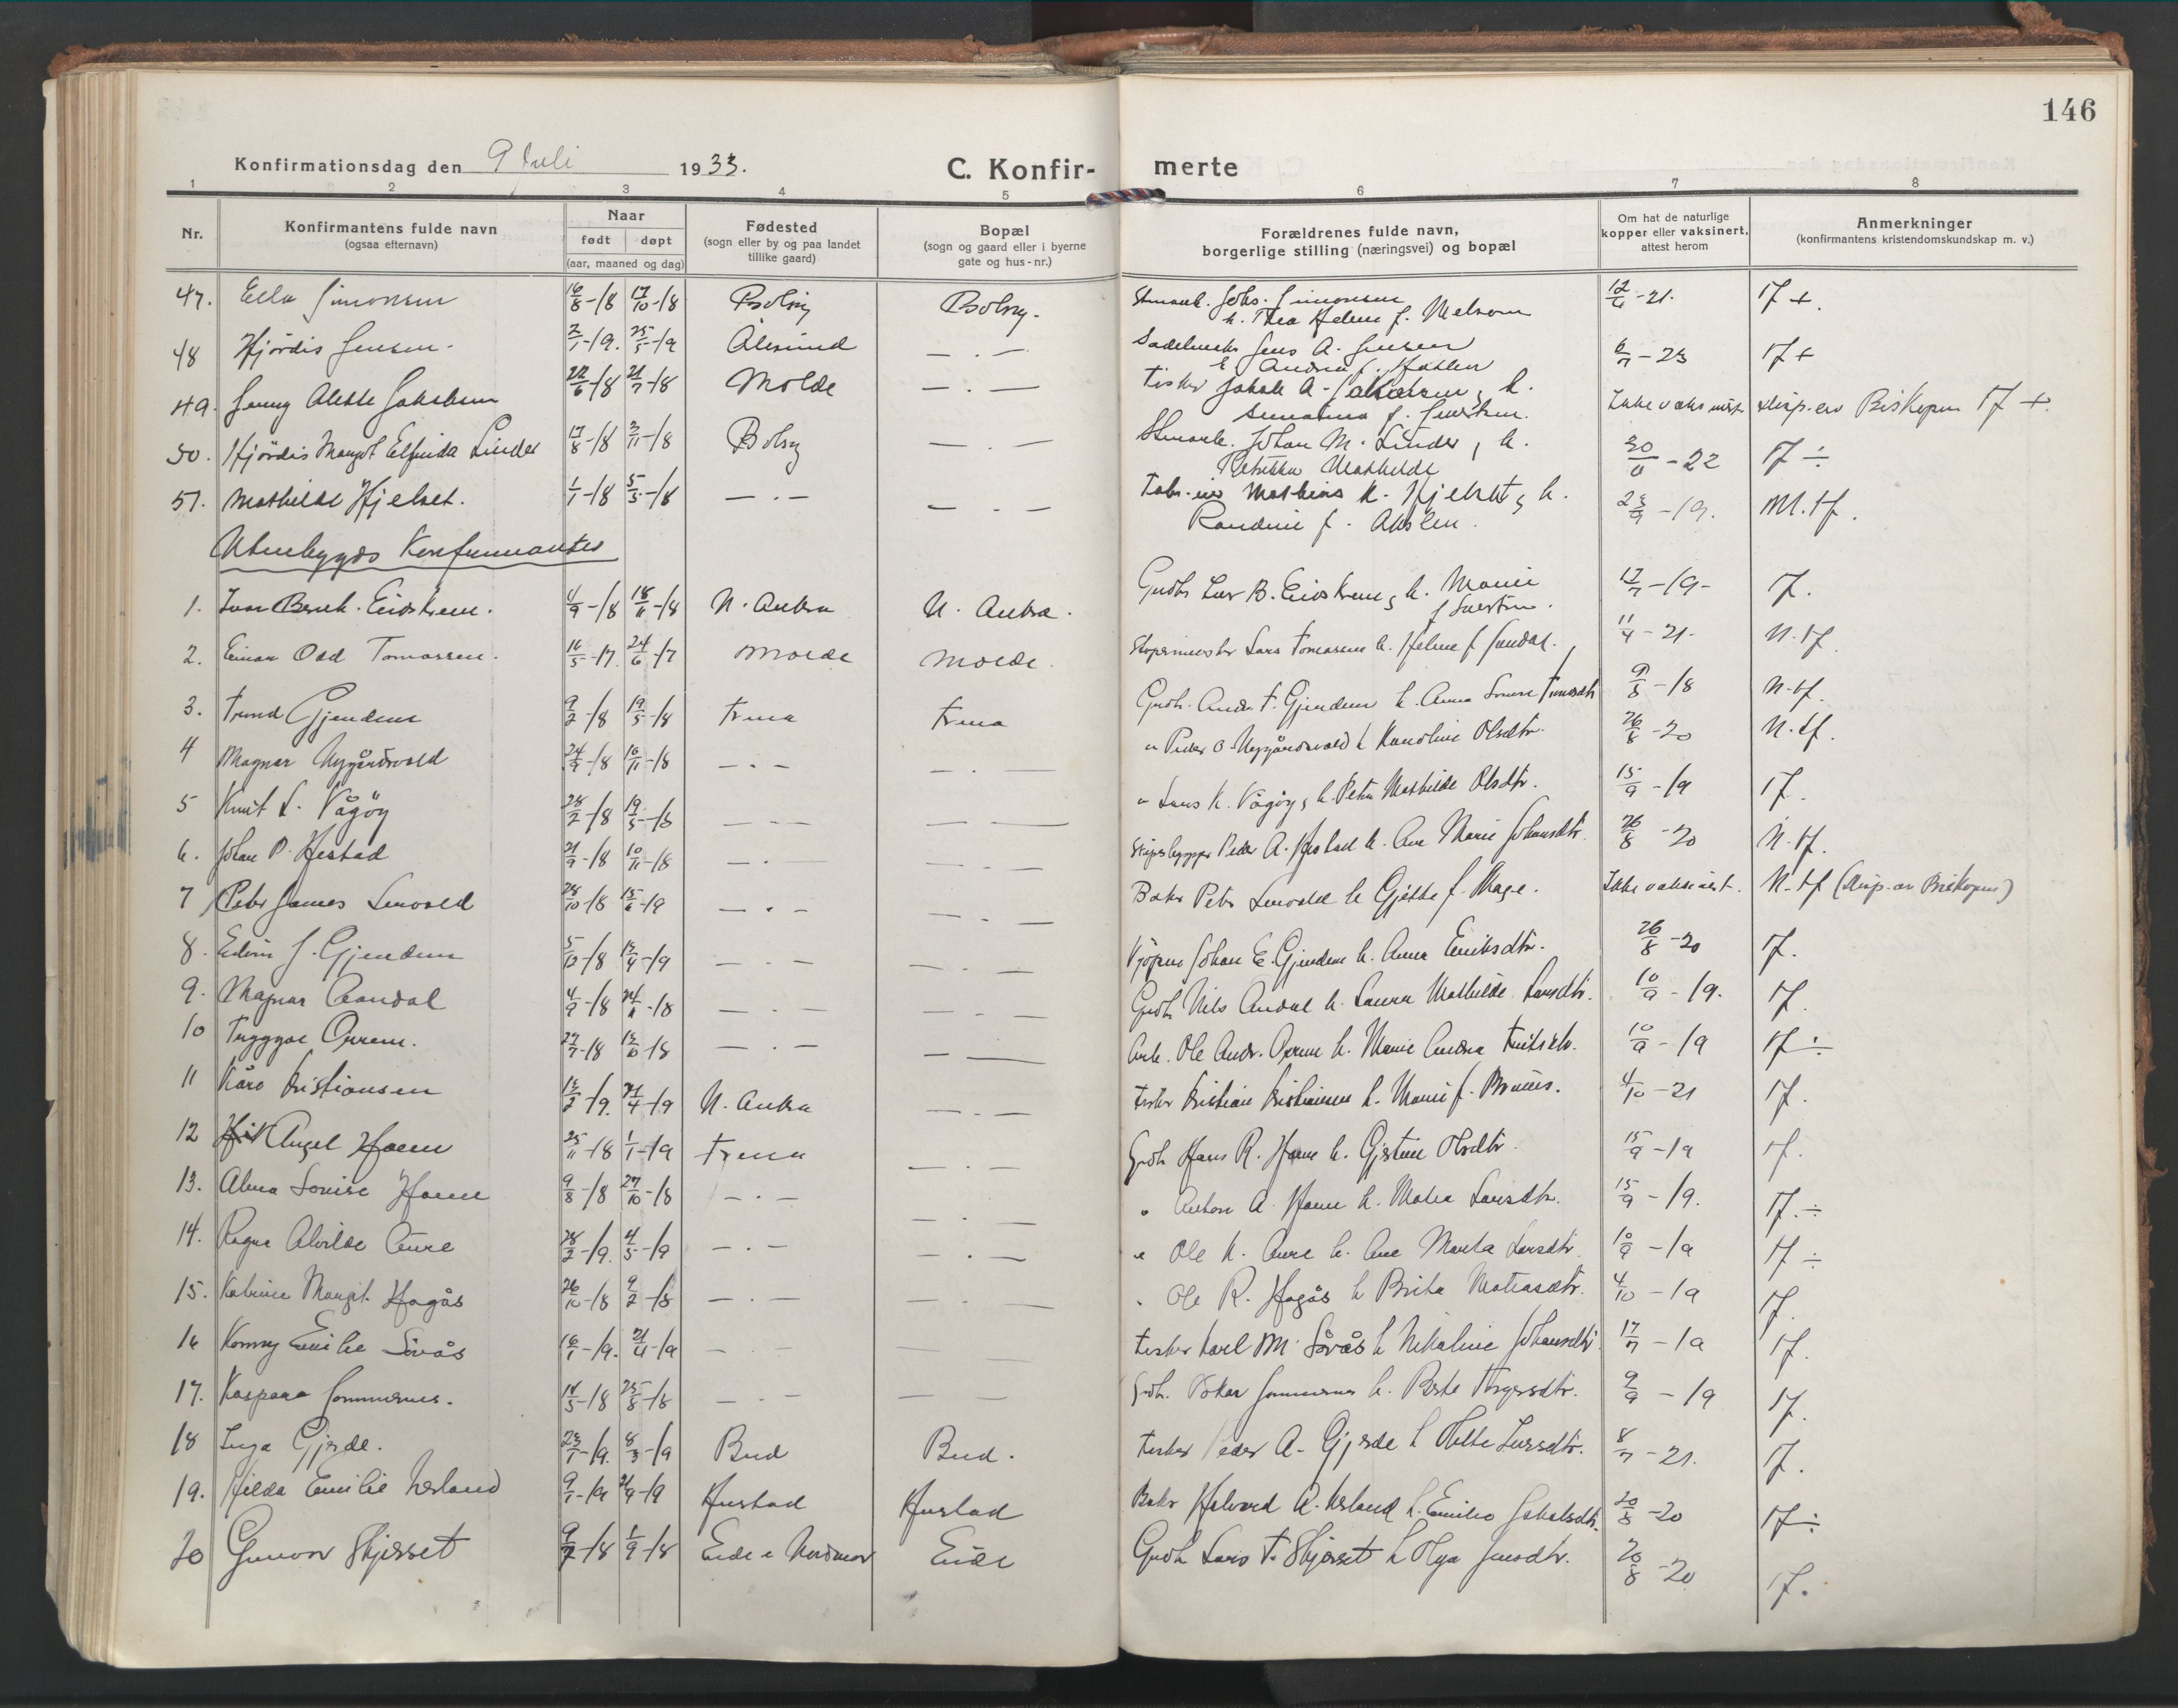 146
Konfirmationsdag den 9 Juli 1933.
C. Konfir- merte
1 2 3 4 5 6 7 8
Nr.
Konfirmantens fulde navn
(ogsaa efternavn)
Naar
født døpt
(aar, maaned og dag)
Fødested
(sogn eller by og paa landet
tillike gaard)
Bopæl
(sogn og gaard eller i byerne
gate og hus-nr.)
Forældrenes fulde navn,
borgerlige stilling (næringsvei) og bopæl
Om hat de naturlige
kopper eller vaksinert,
attest herom
Anmerkninger
(konfirmantens kristendomskundskap m. v.)
47. Ella Simonsen 16/8-18 17/10-18 Bolsøy Bolsøy. Johs. Simonsen 12/6-21. tf +.
h. Thea Helene f. Nelson
48 Hjördis Jensen. 2/1-19. 25/5-19 Ålesund — . — Jens A. Jensen 6/7-23 tf +
49. Jenny Alette Jakobsen 22/6-18 21/7-18 Molde — . — Fisker Jakob A. Jakobsen, h. Ikke vaksinert. disp. av Biskopen tf +.
50. Hjördis Margot Linder 17/8-18 3/11-18 Bolsøy — . — Johan M. Linder, h. 30/6-22 tf ÷
Mathilde
51. Mathilde Hjelset. 1/1-18 5/5-18 — . — — . — Mathias K. Hjelset, h. 23/9-19. M.tf.
Randine f.
Utenbygds Konfirmanter
1. Ivar Bernh. Eidskrem. 4/9-18 18/11-18 N. Aukra N. Aukra. Grdbr Ivar B. Eidskrem, h. Marie 17/7-19- tf.
2. Einar Odd Tomassen. 16/5-17. 24/6-17 Molde Molde. Lars Tomassen h. Helene f. 11/4-21- N.tf.
3. Trond Gjendem 9/2-18 19/5-18 Frena Frena Grdbr. Andr. T. Gjendem h. Anna 9/8-18 N.tf.
4 Magnar Nygårdsvold 24/9-18 10/11-18 — . — — . — " Peder O. Nygårdsvold h Karoline Olsdtr. 26/8-20 N.tf.
5 Knut L. Vågöy 28/2-18 19/5-18 — . — — . — " Lars K. Vågöy, h. Petra Mathilde Olsdtr. 15/9-19 tf.
6. Johan P. Hestad 21/9-18 10/11-18 — . — — . — Skipsbygger Peder A. Hestad h. Ane Marie Johansdtr. 26/8-20 N.tf.
7 Peter James 28/10-18 15/6-19 — . — — . — Baker Peter h Gjette f. Hage. Ikke vaksinert. N.tf (disp. av Biskopen)
8. Edvin J. Gjendem 5/10-18 13/4-19 — . — — . — Johan E. Gjendem h. Anna Eriksdtr. 26/8-20 tf.
9. Magnar Aandal 4/9-18 — . — — . — Grdbr Nils Aandal h. Laura Mathilde Larsdtr. 10/9-19. tf.
10 Tryggve 27/7-18 13/10-18 — . — — . — Arb. Ole Andr. h. Marie Andrea 10/9-19 tf ÷
11 Kåre Kristiansen 13/2-19. 21/4-19 N. Aukra — . — Fisker Kristian Kristiansen h. Marie f. 4/10-21 tf.
12 Angel Haem 25/11-18 1/1-19 Frena — . — Grdb Hans R. h. Gjertine Olsdtr. 15/9-19 tf.
13. Alma Lovise 9/8-18 27/10-18 — . — — . — " Anton A. h. Matea Larsdtr. 15/9-19. tf. ÷
14. Ragna Alvilde Aure 28/2-19. 4/5-19 — . — — . — " Ole K. Aure h. Ane Marta Larsdtr. 10/9-19 tf ÷
15. Katrine Margit Hagås 26/10-18 9/2-18 — . — — . — " Ole R. Hagås h Brita Mateasdtr. 4/10-19 tf.
16 Konny Emilie Sövås 16/1-19. 21/4-19 — . — — . — Fisker Karl M. Sövås h Nikoline Johansdtr. 17/7-19 tf.
17. Kaspara Sommernes. 14/5-18 25/8-18 — . — — — Gdb. Oskar Sommernes h. Berte Torgersdtr. 9/9-19 tf.
18 Inga Gjerde. 23/1-19. 8/3-19 Bud Bud. Fisker Peder A. Gjerde h Larsdtr. 8/7-21. tf.
19. Hilda Emilie Nerland 9/1-19 Hustad Hustad Halvard A. Nerland h. Emilie Jakobsdtr. 20/8-20 tf ÷
20 Gunvor Skjerset 9/7-18 1/9-18 Eide Eide Grdb Lars T. Skjerset h Olga Jensdtr. 20/8-20 tf.